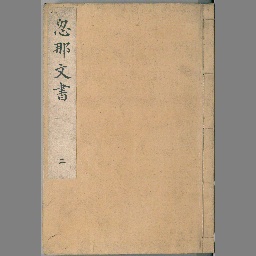 忽那文書
二